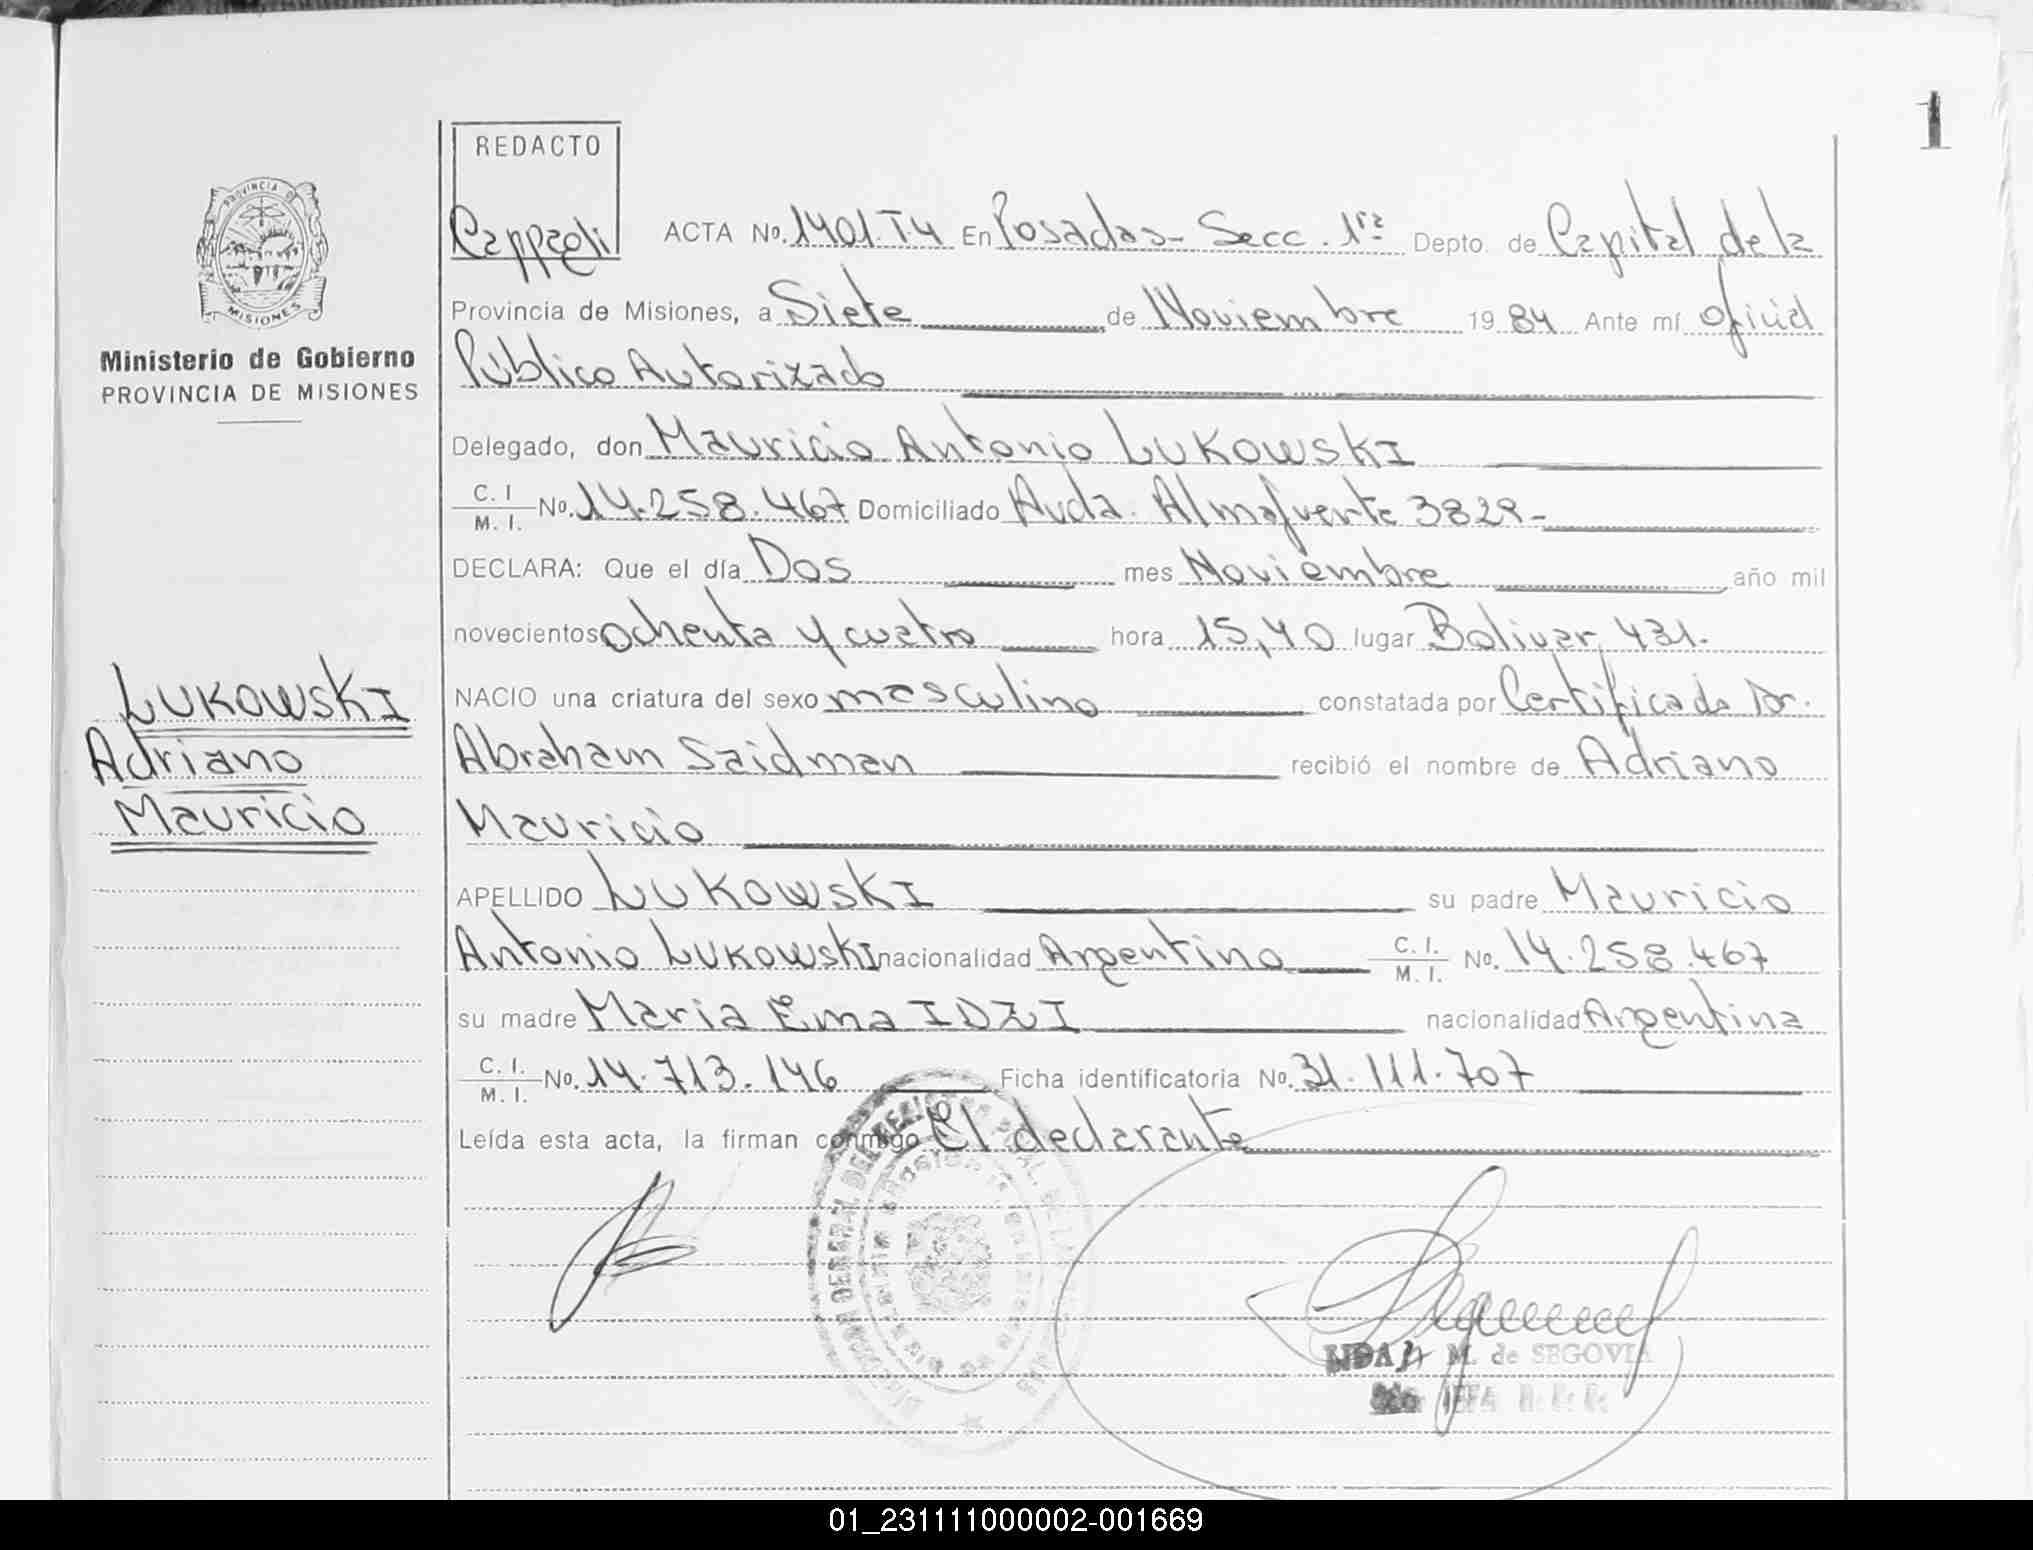 1
REDACTO
PROVINCIA DE
MISIONES
Ministerio de Gobierno
PROVINCIA DE MISIONES
ACTA No. 1401.T4 En Posadas- Secc. 1ra Depto. de Capital de la
Provincia de Misiones, a Siete de Noviembre 19 84 Ante mí oficial
Público Autorizado
Delegado, don Mauricio Antonio LUKOWSKI
C. I. / M. I. No. 14.258.467 Domiciliado Avda. Almafuerte 3829-
DECLARA: Que el día Dos mes Noviembre año mil
novecientos ochenta y cuatro hora 15,40 lugar Bolivar 431.
NACIO una criatura del sexo masculino constatada por Certificado Dr.
Abraham Saidman recibió el nombre de Adriano
Mauricio
APELLIDO LUKOWSKI su padre Mauricio
Antonio LUKOWSKI nacionalidad Argentino C. I. / M. I. No. 14.258.467
su madre Maria Ema IDZI nacionalidad Argentina
C. I. / M. I. No. 14.713.146 Ficha identificatoria No. 31.111.707
Leída esta acta, la firman conmigo El declarante
LUKOWSKI
Adriano
Mauricio
M. de SEGOVIA
01_231111000002-001669